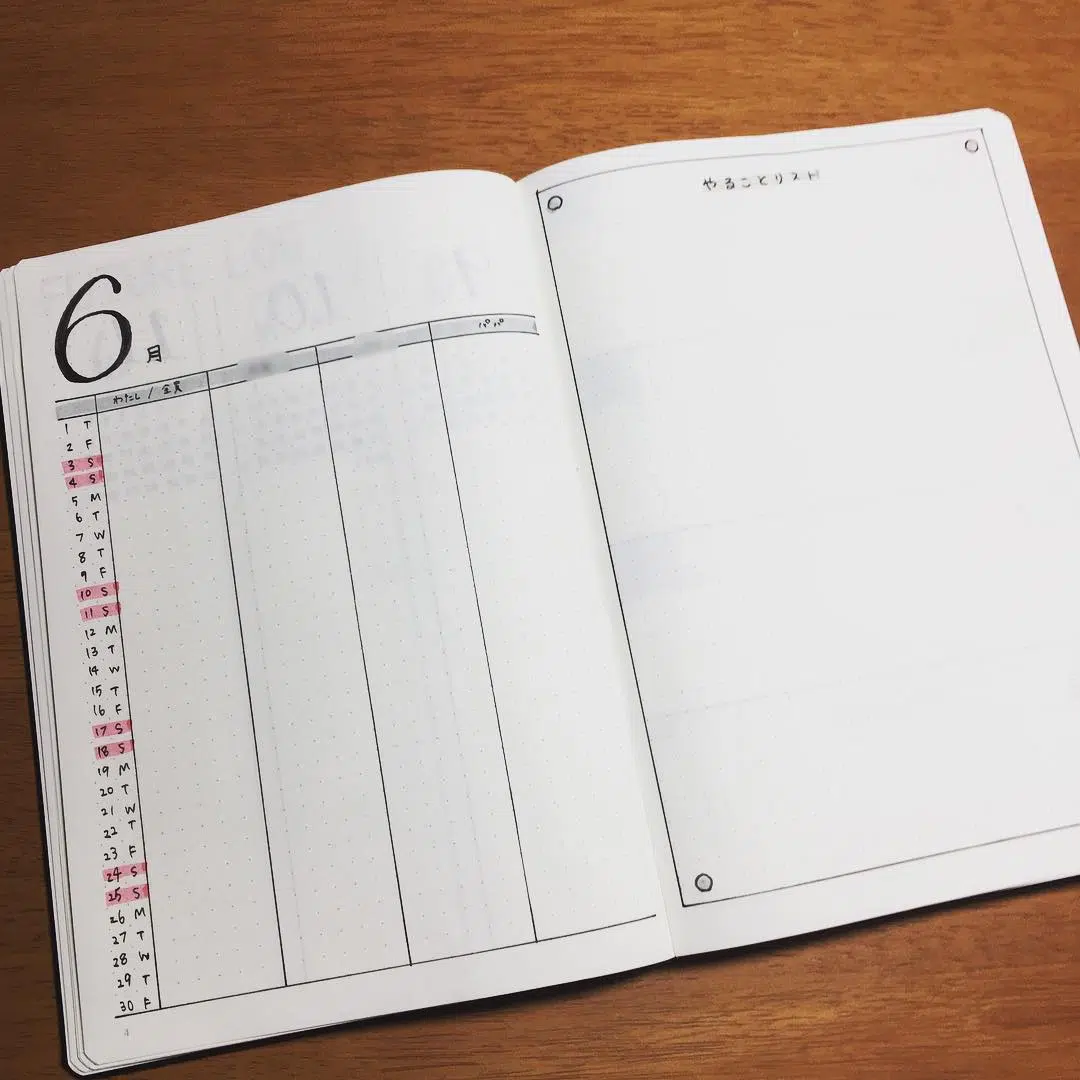 6月
わたし / 全員
パパ
1 T
2 F
3 S
4 S
5 M
6 T
7 W
8 T
9 F
10 S
11 S
12 M
13 T
14 W
15 T
16 F
17 S
18 S
19 M
20 T
21 W
22 T
23 F
24 S
25 S
26 M
27 T
28 W
29 T
30 F
4
やることリスト